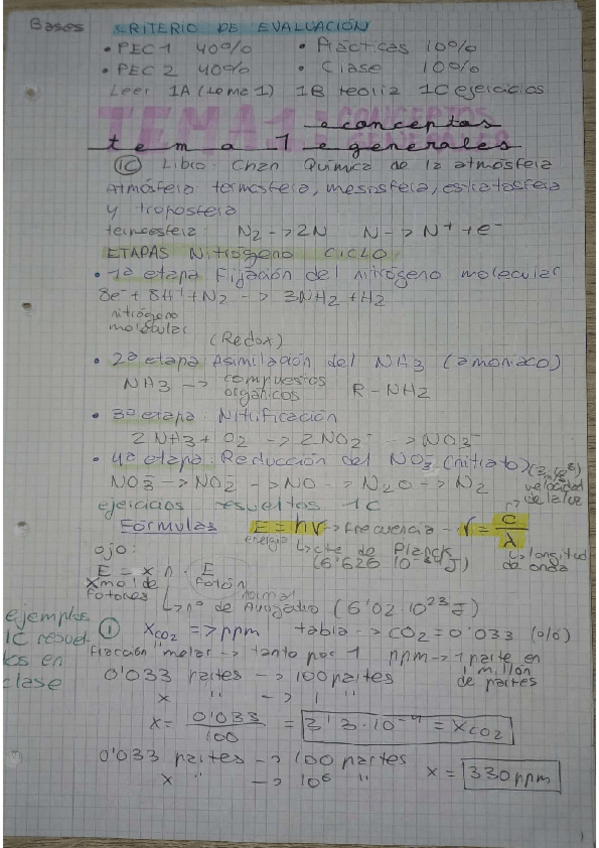 Bases CRITERIO DE EVALUACIÓN
• PEC 1 40% • Prácticas 10%
• PEC 2 40% • Clase 10%
Leer 1A (tema 1) 1B teoría 1C ejercicios
TEMA 1: CONCEPTOS GENERALES
tema 1 e conceptos e generales
1C Libro: Chan Química de la atmósfera
Atmósfera: termosfera, mesosfera, estratosfera
y troposfera
termosfera: N2 -> 2N N -> N+ + e-
ETAPAS Nitrógeno CICLO
• 1ª etapa Fijación del nitrógeno molecular
8e- + 8H+ + N2 -> 3NH2 + H2
nitrógeno
molecular
(Redox)
• 2ª etapa: Asimilación del NH3 (amoniaco)
NH3 -> compuestos orgánicos R-NH2
• 3ª etapa: Nitrificación
2NH3 + O2 -> 2NO2- -> NO3-
• 4ª etapa: Reducción del NO3- (nitrato)
NO3- -> NO2- -> NO -> N2O -> N2
velocidad
de la luz
ejercicios resueltos 1C
Fórmulas E = hν -> frecuencia - ν = c/λ
energía cte de Planck longitud
de onda
ojo:
E = x · n · E
X mol de fotones fotón
-> nº de Avogadro (6'02 · 10^23
ejemplos
1C resuel-
tos en
clase
① XCO2 => ppm tabla -> CO2 = 0'033 (%)
fracción molar -> tanto por 1 ppm -> 1 parte en
1 millón
de partes
0'033 partes -> 100 partes
x " -> 1 "
x = 0'033/100 = 3'3·10^-4 = XCO2
0'033 partes -> 100 partes
x " -> 10^6 " x = 330 ppm